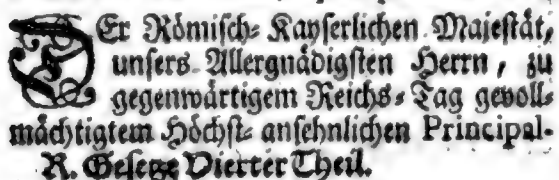 DEr Römisch-Kayserlichen Majestät,
unsers Allergnädigsten Herrn, zu
gegenwärtigem Reichs-Tag gevoll-
mächtigtem Höchst-ansehnlichen Principal-
R. Gesetze Vierter Theil.